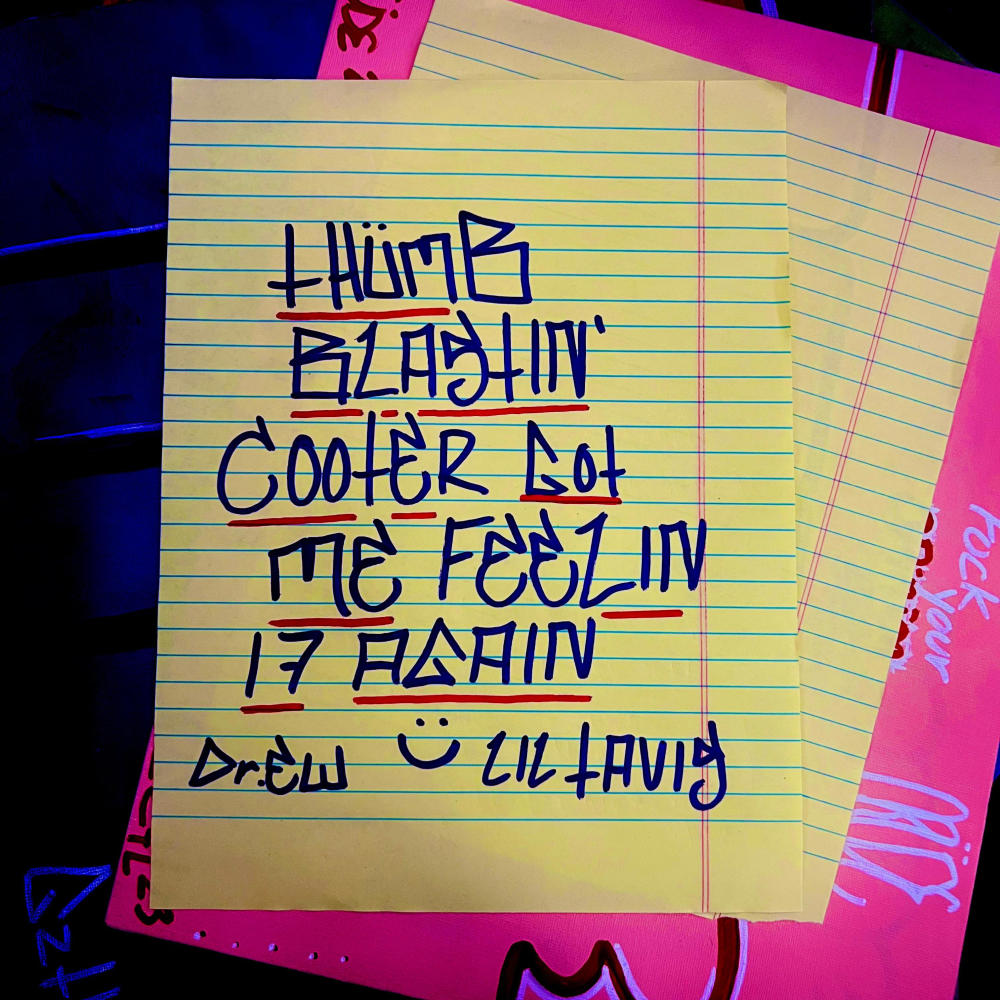 tHÜmB
BLAStIN'
COOtER Got
ME FEELIN
17 AGAIN
Dr.EW Ü LIL tAVIS
FUCK Your